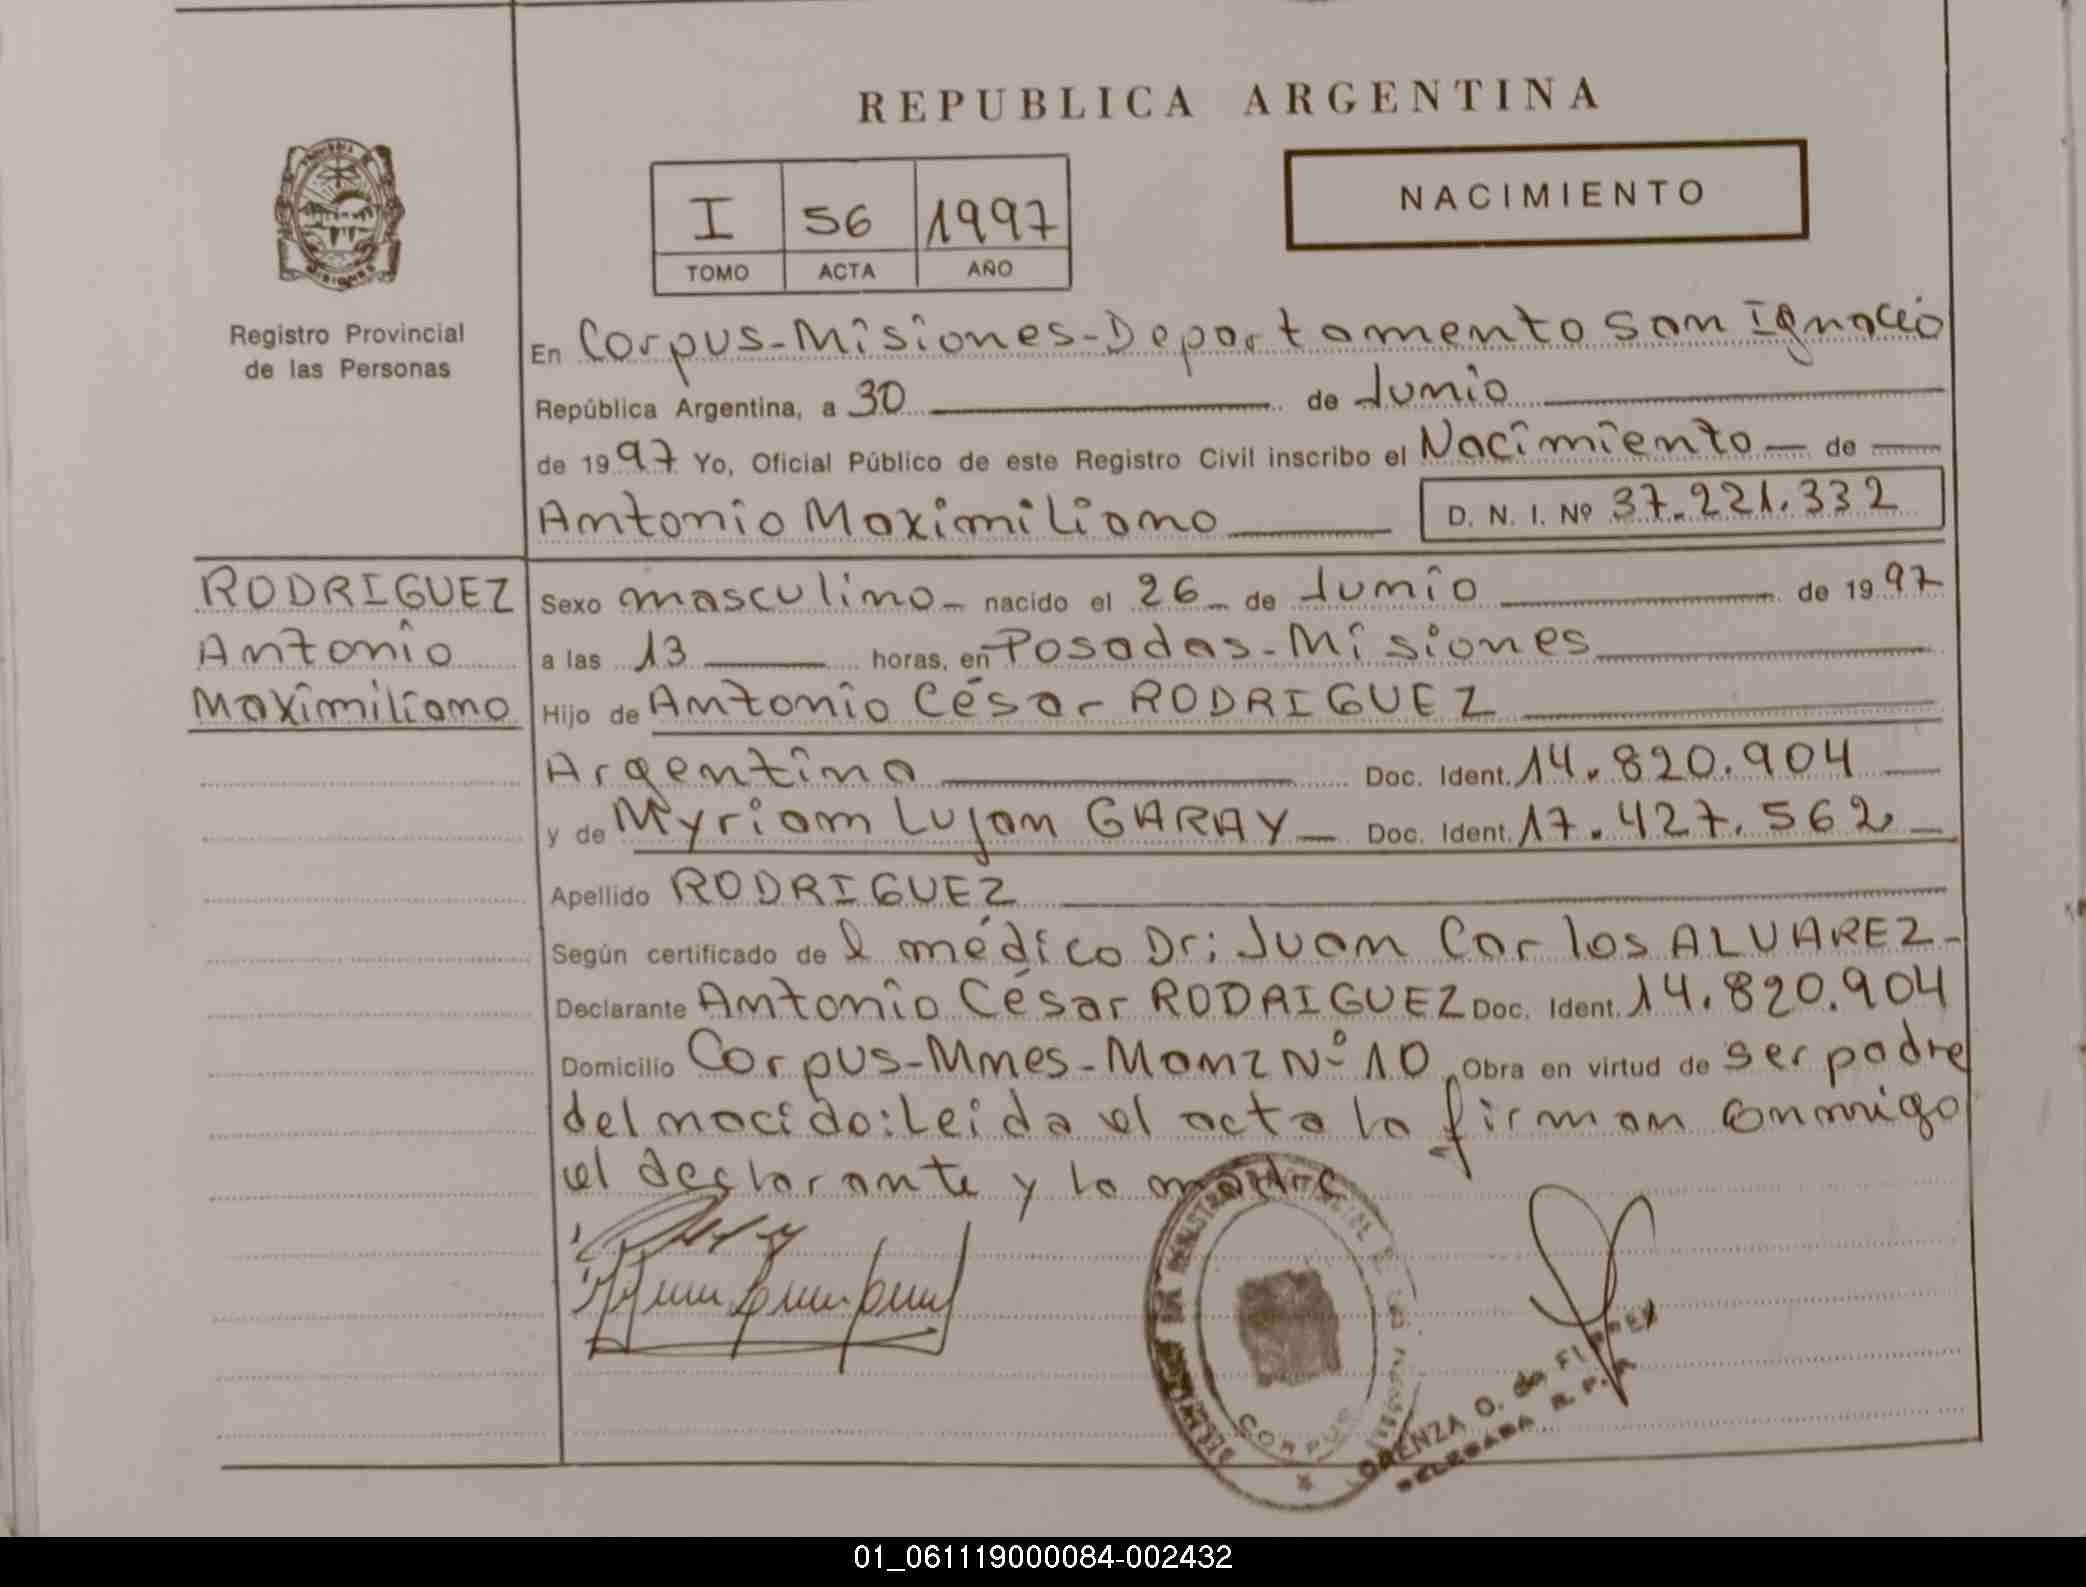 REPUBLICA ARGENTINA
NACIMIENTO
I 56 1997
TOMO ACTA AÑO
Registro Provincial
de las Personas
En Corpus-Misiones-Departamento San Ignacio
República Argentina, a 30 de Junio
de 1997 Yo, Oficial Público de este Registro Civil inscribo el Nacimiento de
Antonio Maximiliano D. N. I. Nº 37.221.332
RODRIGUEZ
Antonio
Maximiliano
Sexo masculino nacido el 26 de Junio de 1997
a las 13 horas, en Posadas-Misiones
Hijo de Antonio César RODRIGUEZ
Argentino Doc. Ident. 14.820.904
y de Myriam Lujan GARAY Doc. Ident. 17.427.562
Apellido RODRIGUEZ
Según certificado de l médico Dr: Juan Carlos ALVAREZ-
Declarante Antonio César RODRIGUEZ Doc. Ident. 14.820.904
Domicilio Corpus-Mnes-Manz Nº 10 Obra en virtud de ser padre
del nacido: Leida el acta la firman conmigo
el declarante y la madre
CORPUS
DELEGADA R. P. P.
01_061119000084-002432